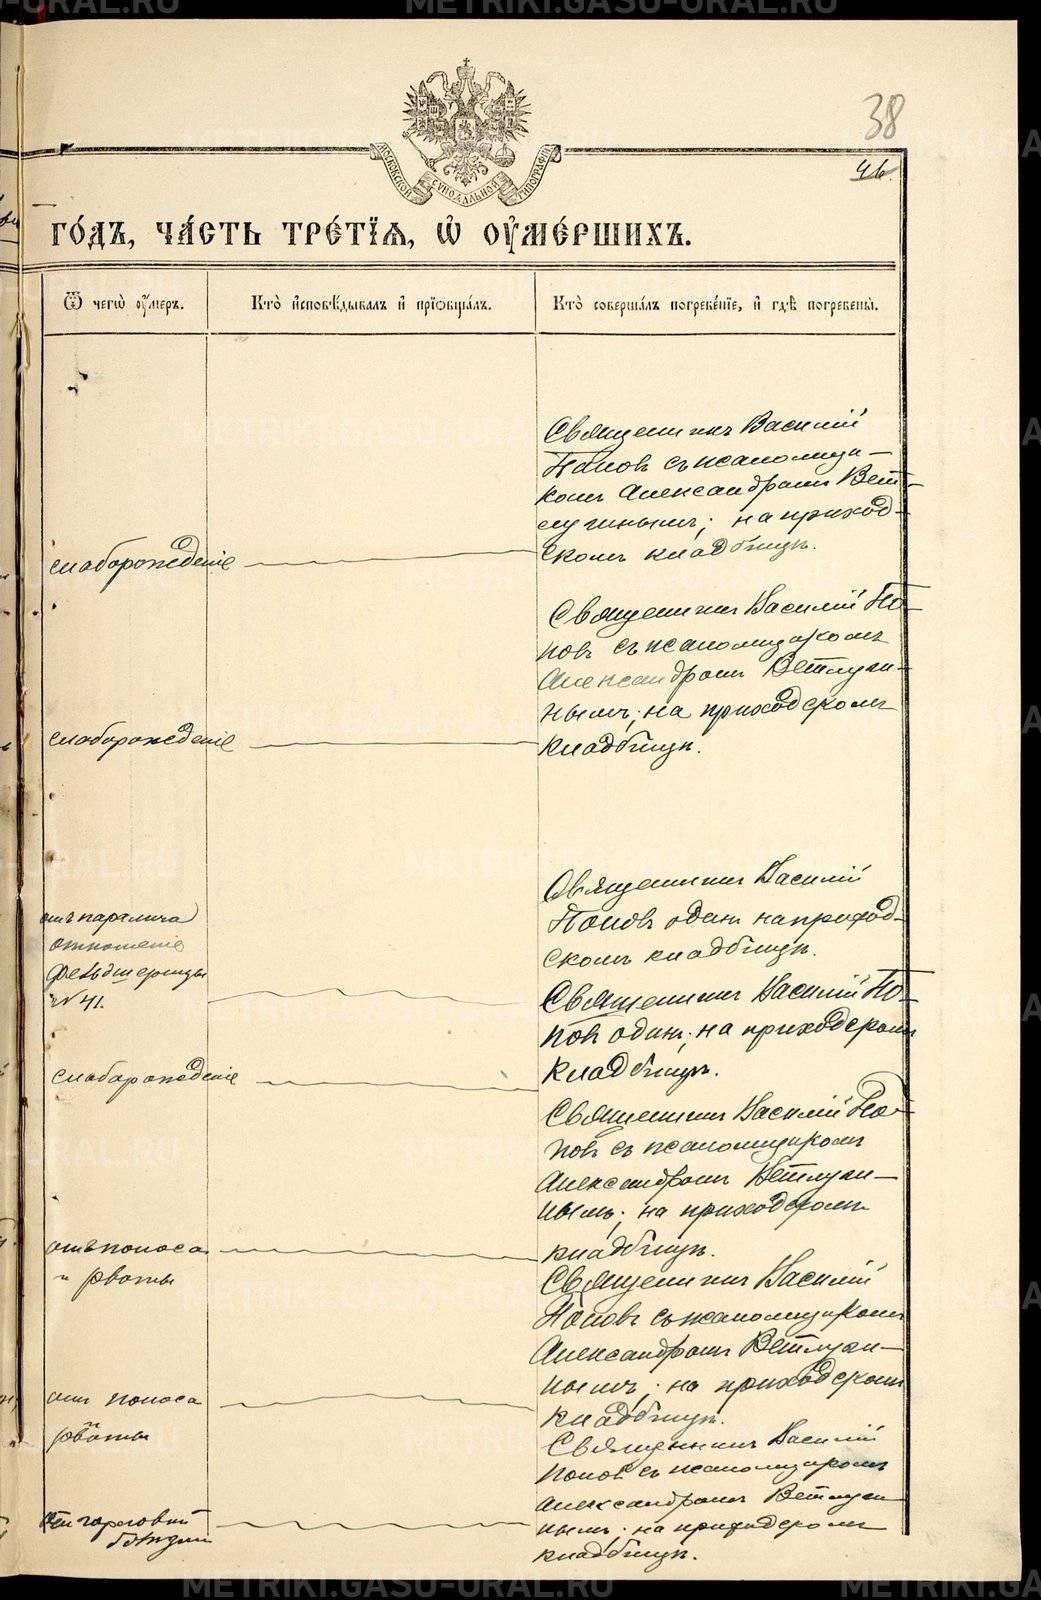 METRIKI.GASU-URAL.RU
38
46.
МОСКОВСКОЙ СѴНОДАЛЬНОЙ ТИПОГРАФІИ
ГО́ДЪ, ЧА́СТЬ ТРЕ́ТІѦ, Ѡ҆ ОУ҆МЕ́РШИХЪ.
Ѿ чегѡ̀ оу҆́меръ.
Кто̀ и҆сповѣ́дывалъ и҆ прїѡбща́лъ.
Кто̀ соверша́лъ погребе́нїе, и҆ гдѣ̀ погребены̀.
Священникъ Василій
Поповъ съ псаломщи-
комъ Александромъ Вет-
лугинымъ; на приход-
скомъ кладбищѣ.
слаборожденіе
Священникъ Василій По-
повъ съ псаломщикомъ
Александромъ Ветлуги-
нымъ; на приходскомъ
кладбищѣ.
слаборожденіе
Священникъ Василій
Поповъ одинъ на приход-
скомъ кладбищѣ.
отъ паралича
отношеніе
фельдшерицы
№ 41.
Священникъ Василій По-
повъ одинъ; на приходскомъ
кладбищѣ.
слаборожденіе
Священникъ Василій По-
повъ съ псаломщикомъ
Александромъ Ветлуги-
нымъ; на приходскомъ
кладбищѣ.
отъ поноса
и рвоты
Священникъ Василій
Поповъ съ псаломщикомъ
Александромъ Ветлуги-
нымъ; на приходскомъ
кладбищѣ.
отъ поноса
и
рвоты
Священникъ Василій
Поповъ съ псаломщикомъ
Александромъ Ветлуги-
нымъ; на приходскомъ
кладбищѣ.
отъ горловой
болѣзни
METRIKI.GASU-URAL.RU